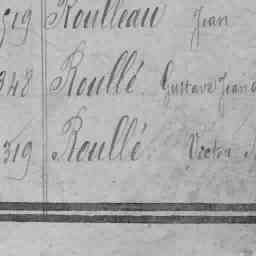 519 Roulleau Jean
348 Roullé. Gustave Jean
319 Roullé. Victor